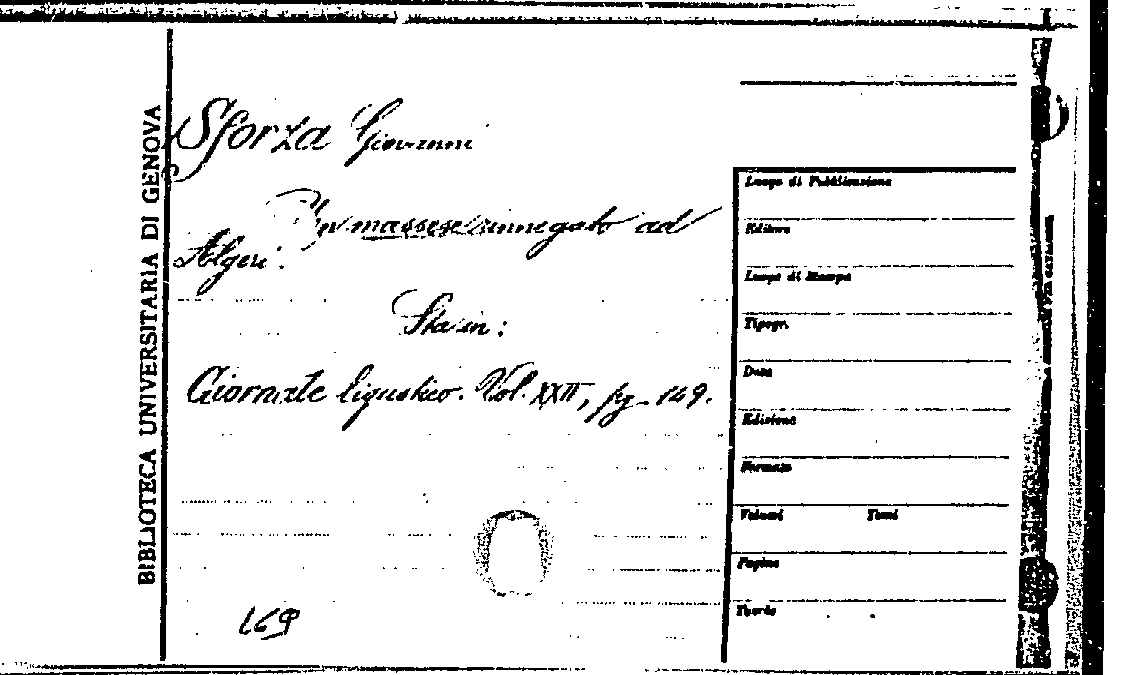 BIBLIOTECA UNIVERSITARIA DI GENOVA
Sforza Giovanni
Un massese rinnegato ad
Algeri.
Sta in:
Giornale ligustico. Vol. XXII, pg. 149.
169
Luogo di Pubblicazione
Editore
Luogo di Stampa
Tipogr.
Data
Edizione
Formato
Volumi Tomi
Pagine